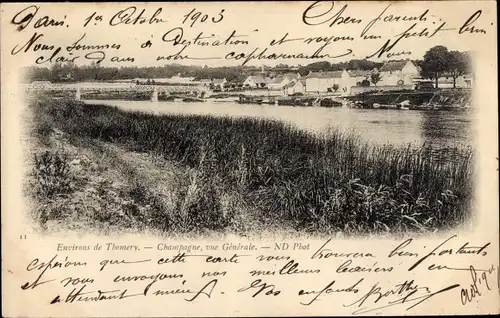 Paris, 1er Octobre 1903
Chers parents
Nous Sommes à Destination et voyons un petit bien
clair Dans le capharnaüm
11
Environs de Thomery. — Champagne, vue Générale. — ND Phot
Espérons que cette carte vous trouvera bien portant
et vous envoyons nos meilleurs baisers en
attendant mieux. Vos enfants Berthe